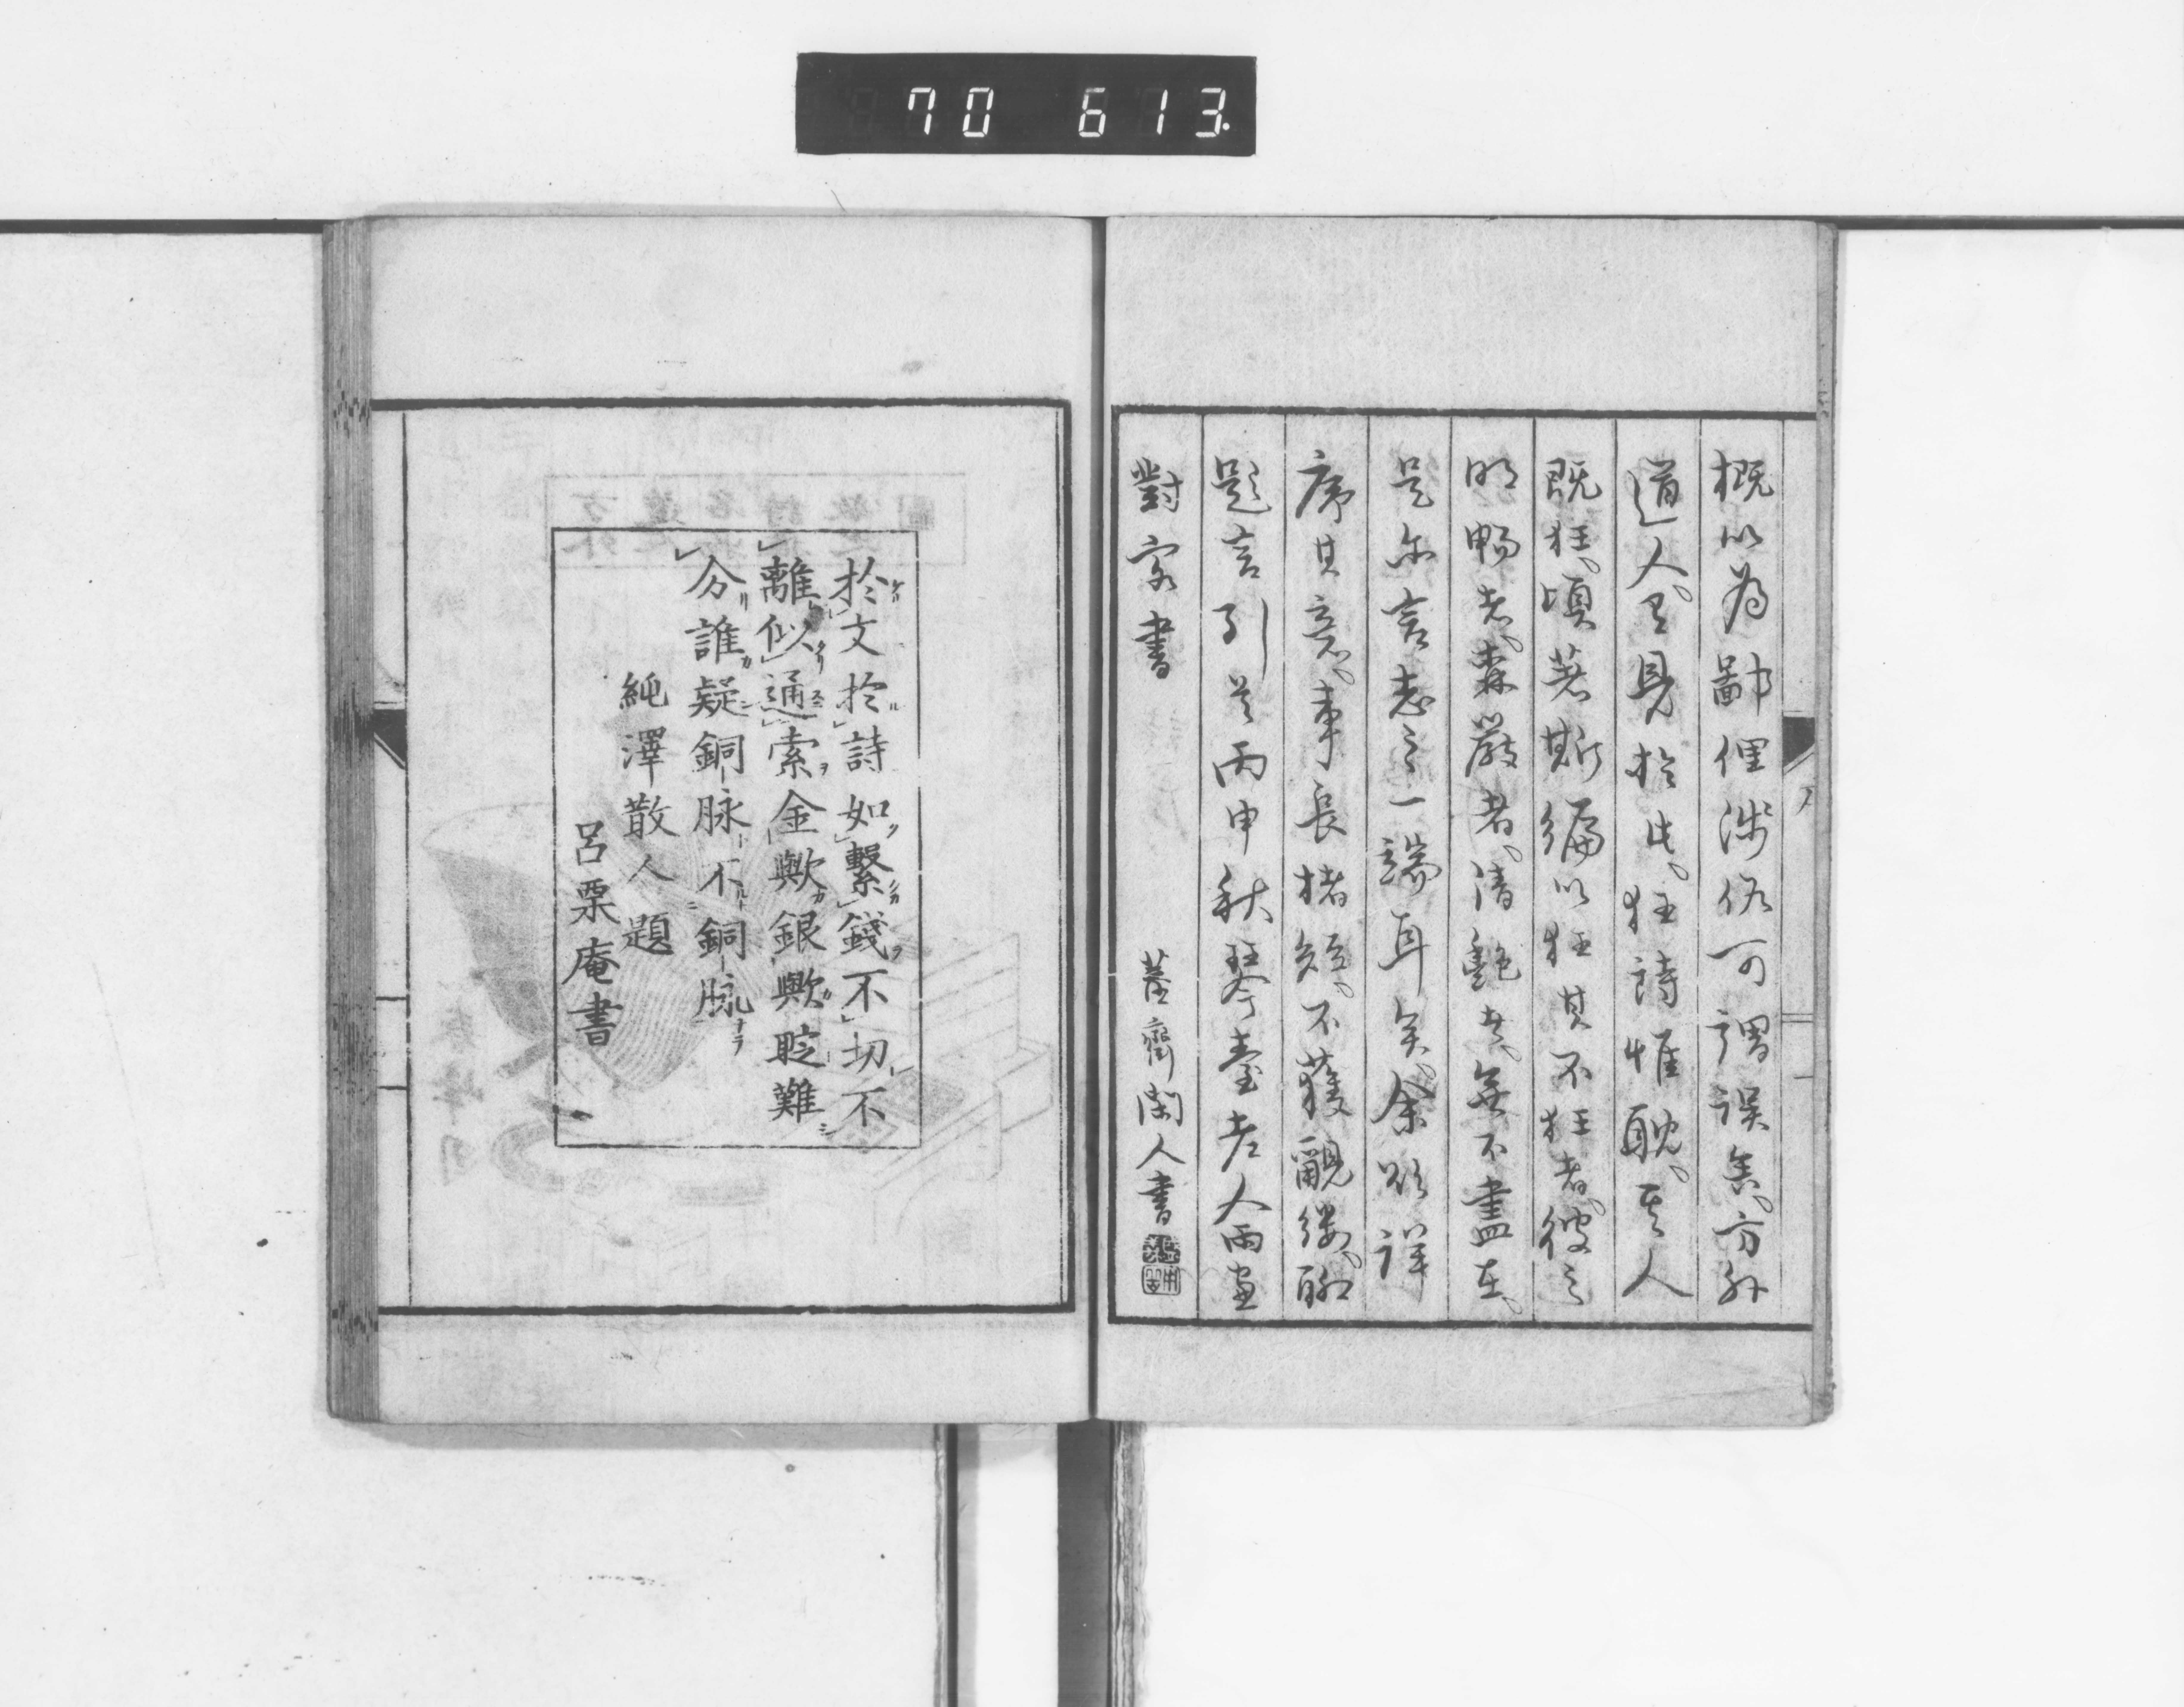 70 613.
概以為鄙俚淺俗可謂誤矣。方外
道人。有見於此。狂詩惟耽。其人
既狂。頃著斯編以狂其不狂者。彼之
明暢者。森嚴者。清艶者。無不盡在。
是亦言志之一端耳矣。余欲詳
序其意。事長楮短。不獲覼縷。聊
題言引首丙申秋琴臺老人雨窗
對客書
齋閑人書
於文於詩如繫錢不切不
離似通索金歟銀歟眩難
分誰疑銅脉不銅脉
純澤散人題
呂栗庵書